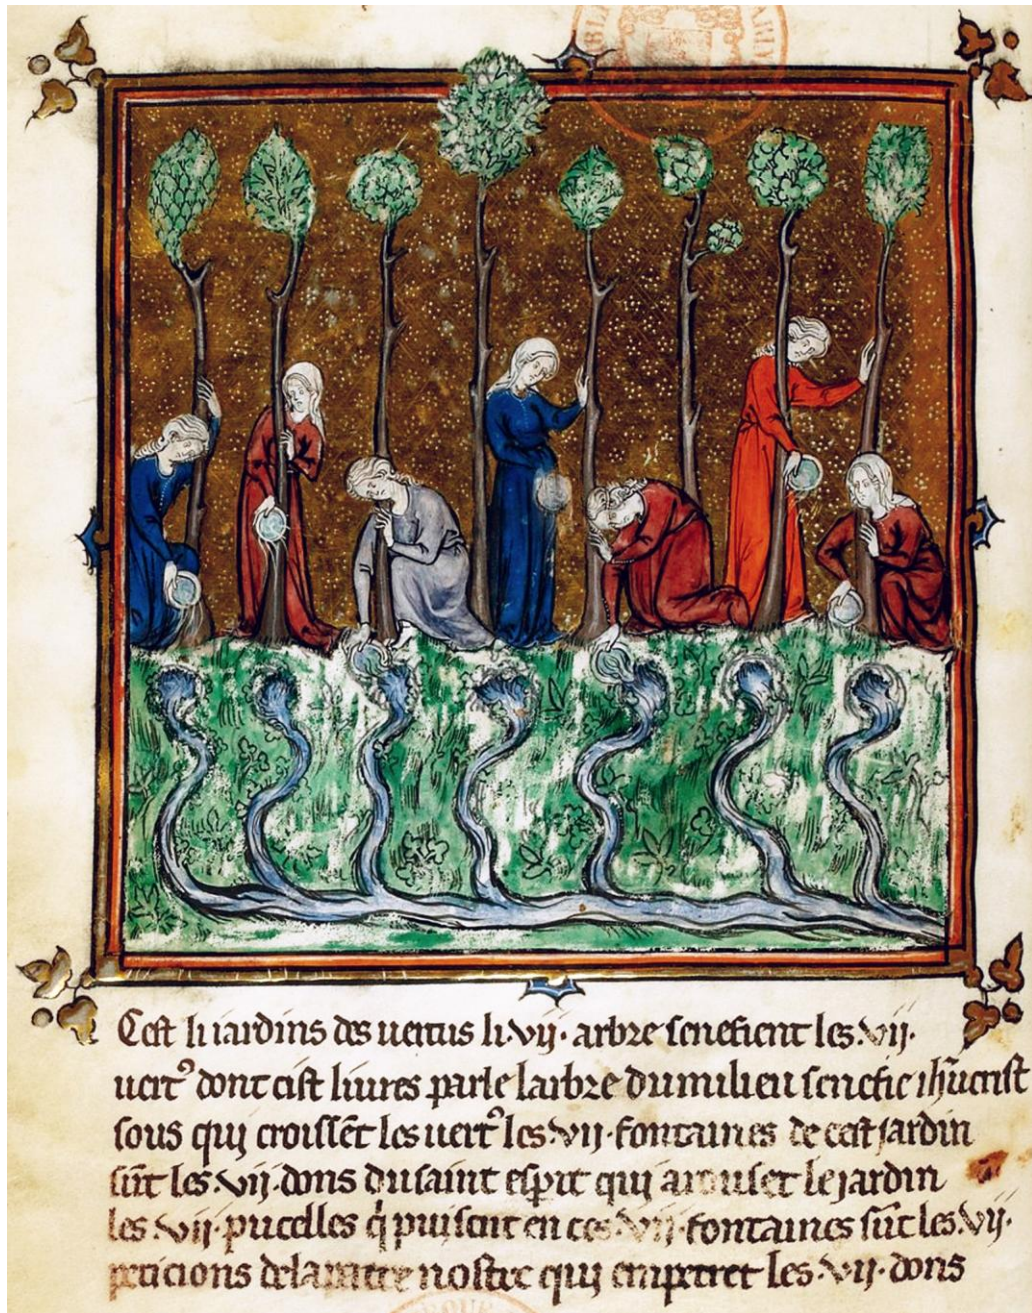 Cest li iardins des uertus li .vij. arbre senefient les .vij.
uert⁹ dont cist liures parle larbre du milieu senefie ihūcrist
sous qui croissēt les uert⁹ les .vij. fontaines de cest jardin
sūt les .vij. dons du saint esprit qui arouset le jardin
les .vij. pucelles q̄ puisent en ces .vij. fontaines sūt les .vij.
peticions de la patre nostre qui empetret les .vij. dons